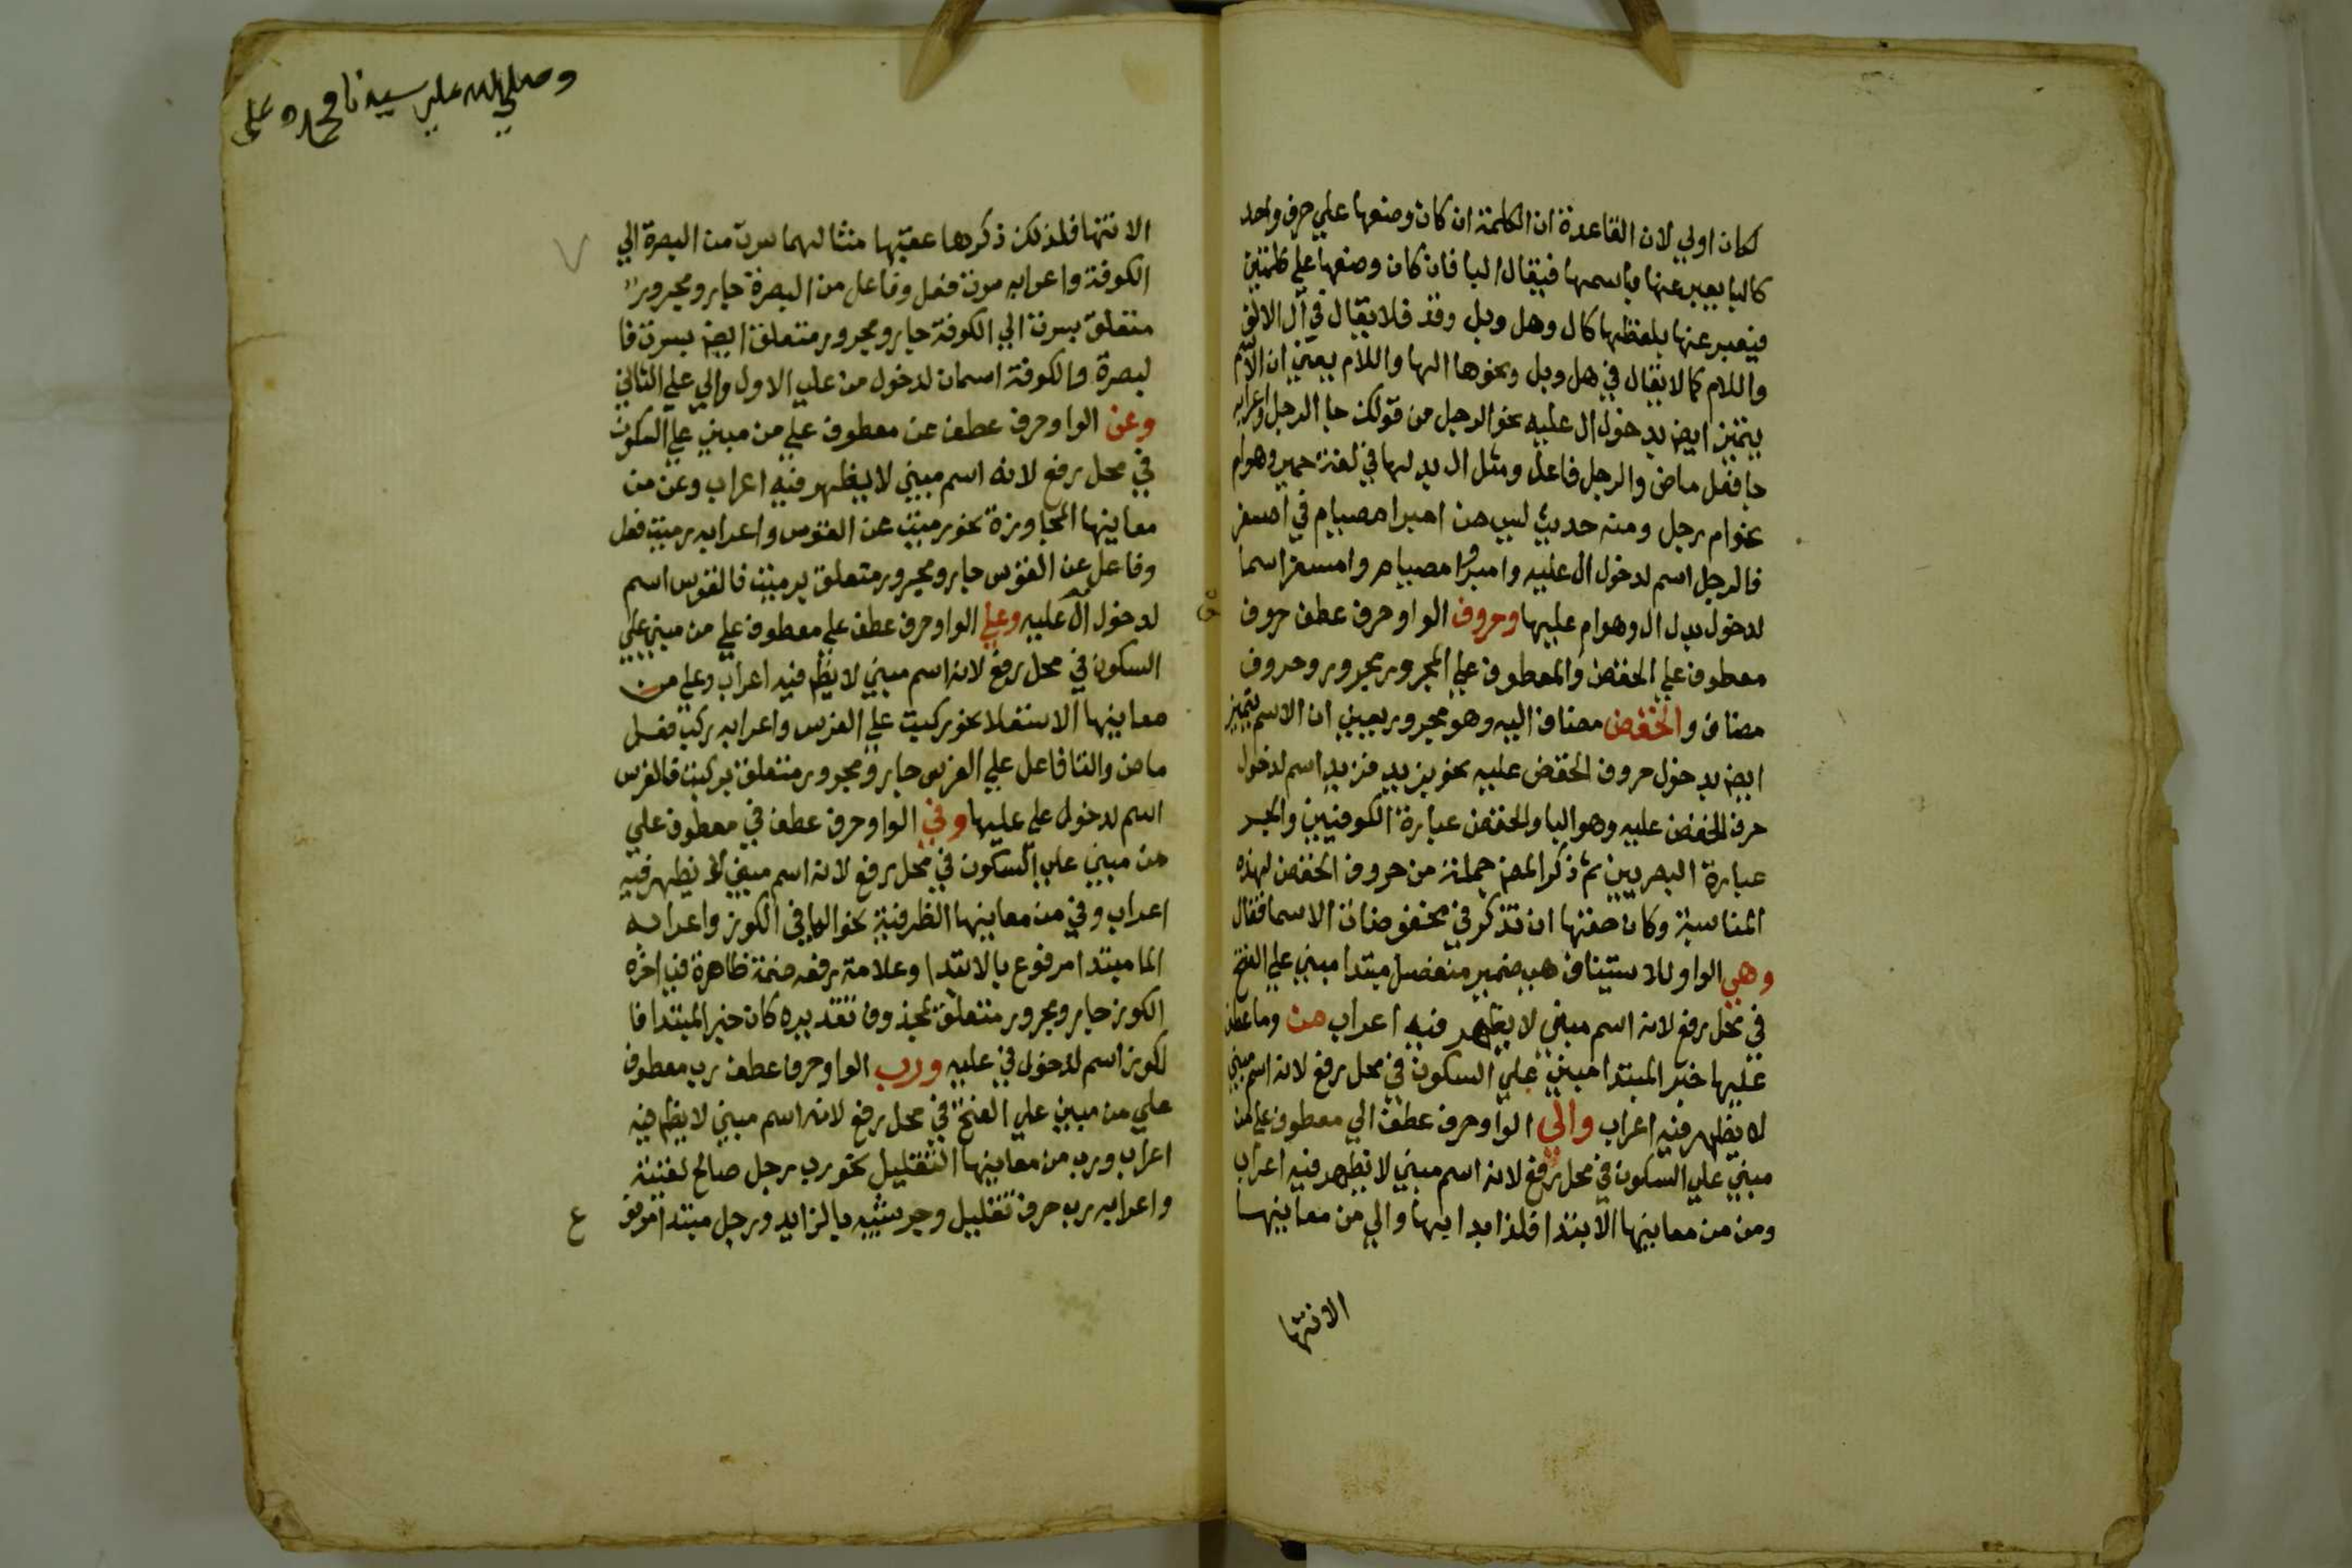 لكان اولي لان القاعدة ان الكلمة ان كان وضعها علي حرف واحد
كالبا يعبر عنها باسمها فيقال البا فان كان وضعها علي كلمتين
فيعبر عنها بلفظها كال وهل وبل وقد فلا يقال في ال الالف
واللام كما لا يقال في هل وبل ونحوها الها واللام يعني ان الاسم
يتميز ايض بدخول ال عليه نحو الرجل من قولك جا الرجل واعرابه
جا فعل ماض والرجل فاعل ومثل ال بدلها في لغة حمير وهو ام
نحو ام رجل ومنه حديث ليس من امبر امصيام في امسفر
فالرجل اسم لدخول ال عليه وامبر وامصيام وامسفر اسما
لدخول بدل ال وهو ام عليها وحروف الواو حرف عطف حروف
معطوف علي الخفض والمعطوف علي المجرور مجرور وحروف
مضاف والخفض مضاف اليه وهو مجرور يعني ان الاسم يتميز
ايض بدخول حروف الخفض عليه نحو بزيد فزيد اسم لدخول
حرف الخفض عليه وهو البا والخفض عبارة الكوفيين والجر
عبارة البصريين ثم ذكر المص جملة من حروف الخفض لهذه
المناسبة وكان حقها ان تذكر في مخفوضات الاسما فقال
وهي الواو للاستيناف هي ضمير منفصل مبتدا مبني علي الفتح
في محل رفع لانه اسم مبني لا يظهر فيه اعراب من وما عطف
عليها خبر المبتدا مبني علي السكون في محل رفع لانه اسم مبني
لا يظهر فيه اعراب والي الواو حرف عطف الي معطوف علي من
مبني علي السكون في محل رفع لانه اسم مبني لا يظهر فيه اعراب
ومن من معانيها الابتدا فلذا بدا بها والي من معانيها
الانتها
وصلي الله علي سيدنا محمد وعلي
الانتها فلذلك ذكرها عقبها مثالهما سرت من البصرة الي
الكوفة واعرابه سرت فعل وفاعل من البصرة جار ومجرور
متعلق بسرت الي الكوفة جار ومجرور متعلق ايض بسرت فا
لبصرة والكوفة اسمان لدخول من علي الاول والي علي الثاني
وعن الواو حرف عطف عن معطوف علي من مبني علي السكون
في محل رفع لانه اسم مبني لا يظهر فيه اعراب وعن من
معانيها المجاوزة نحو رميت عن القوس واعرابه رميت فعل
وفاعل عن القوس جار ومجرور متعلق برميت فالقوس اسم
لدخول ال عليه وعلي الواو حرف عطف علي معطوف علي من مبني علي
السكون في محل رفع لانه اسم مبني لا يظهر فيه اعراب وعلي من
معانيها الاستعلا نحو ركبت علي الفرس واعرابه ركب فعل
ماض والتا فاعل علي الفرس جار ومجرور متعلق بركبت فالفرس
اسم لدخول علي عليها وفي الواو حرف عطف في معطوف علي
من مبني علي السكون في محل رفع لانه اسم مبني لا يظهر فيه
اعراب وفي من معانيها الظرفية نحو الما في الكوز واعرابه
الما مبتدا مرفوع بالابتدا وعلامة رفعه ضمة ظاهرة في اخره
الكوز جار ومجرور متعلق بمحذوف تقديره كان خبر المبتدا فا
لكوز اسم لدخول في عليه ورب الواو حرف عطف رب معطوف
علي من مبني علي الفتح في محل رفع لانه اسم مبني لا يظهر فيه
اعراب ورب من معانيها التقليل نحو رب رجل صالح لقيته
واعرابه رب حرف تقليل وجر شبيه بالزايد ورجل مبتدا مرفوع